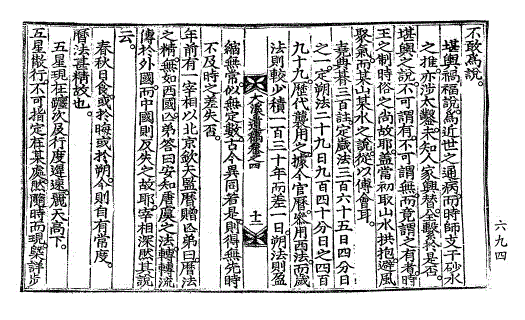 不敢爲說。
堪輿禍福說爲近世之通病而時師支子砂水
之推亦涉太鑿未知人家興替全繫於是否。
堪輿之說不可謂有不可謂無而竟謂之有者時
王之制時俗之尚故耶蓋當初取山水拱抱避風
聚氣而某山某水之說從以傅會耳
堯典朞三百註定歲法三百六十五日四分日
之一定朔法二十九日九百四十分日之四百
九十九歷代襲用之據今官曆參用西法而歲
法則較少積一百三十年而差一日朔法則盈
遺稿卷之四 十二
縮無常似無定數古今異同若是則得無先時
不及時之差失否
年前有一宰相以北京欽天監曆贈 弟曰曆法
之精無如西國 弟答曰安知唐虞之法轉轉流
傳於外國而中國則反失之故耶宰相深然其說
云。
春秋日食或於晦或於朔今則自有常度。
曆法甚精故也
五星現在躔次及行度遲速麗天高下。
五星散行不可指定在某處然隨時而現槩詳步
六九四